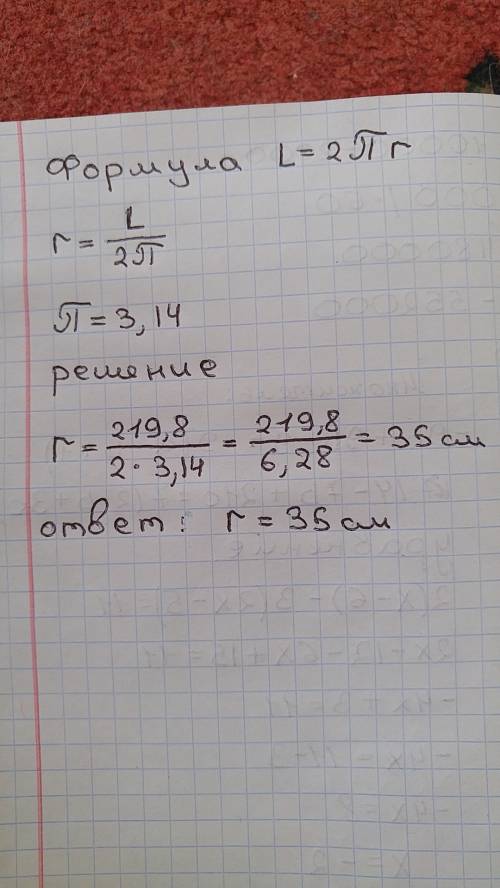 Формула L = 2πr
r = L / 2π
π = 3,14
решение
r = 219,8 / 2 · 3,14 = 219,8 / 6,28 = 35 см
ответ: r = 35 см